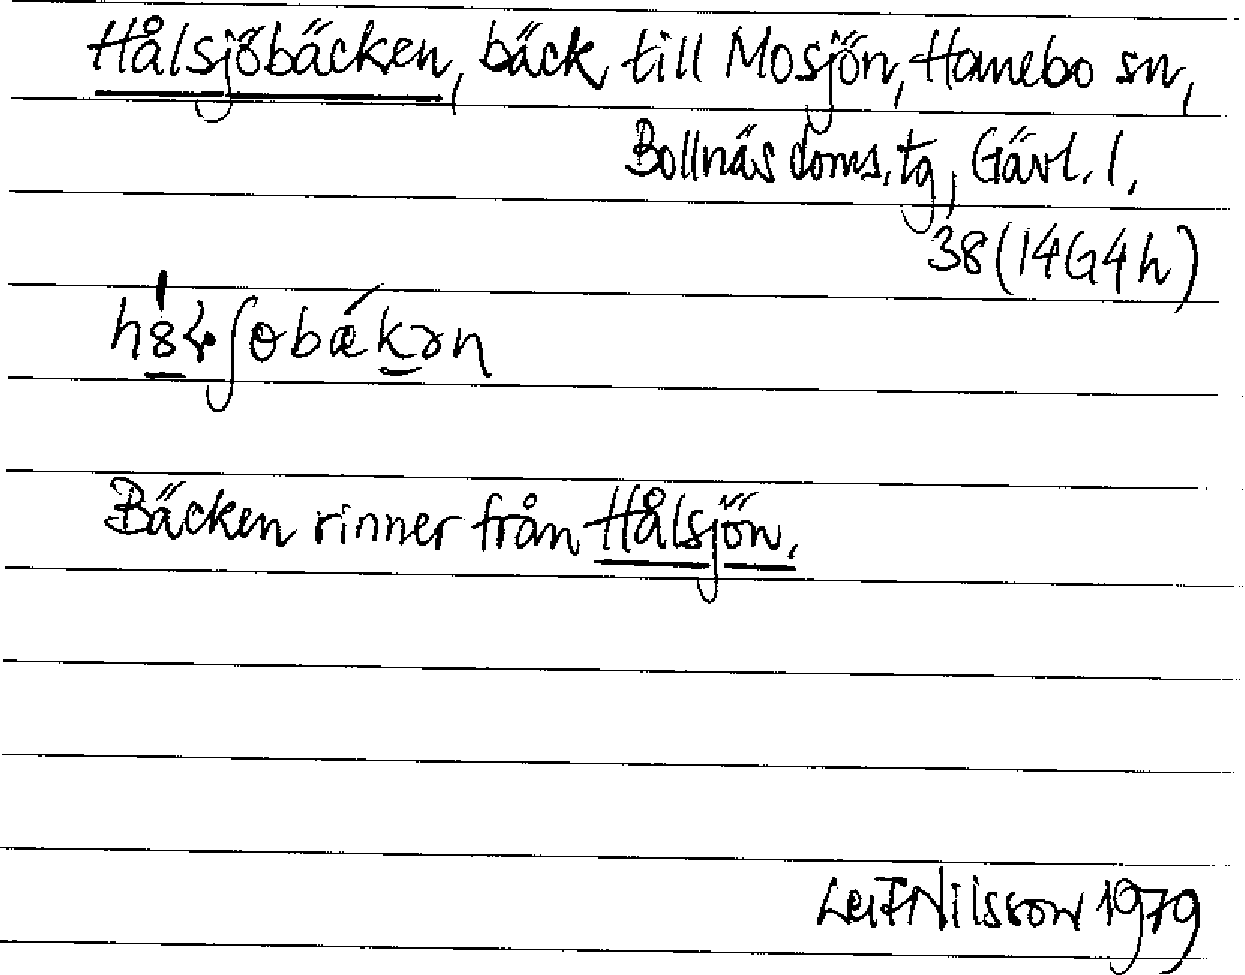 Hålsjöbäcken, bäck till Mosjön, Hanebo sn,
Bollnäs doms.tg, Gävl. l.
38 (14G4h)
Bäcken rinner från Hålsjön.
Leif Nilsson 1979